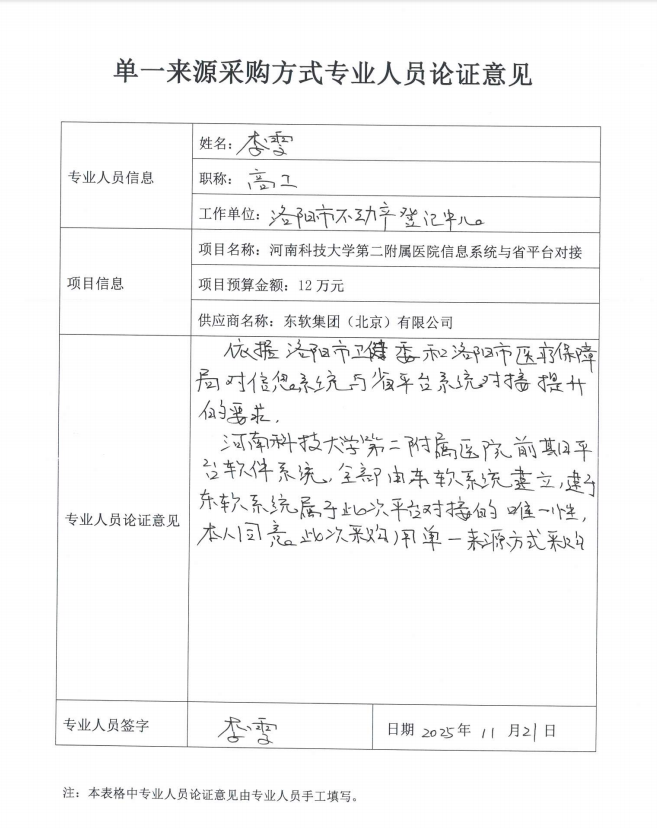 单一来源采购方式专业人员论证意见
专业人员信息
姓名：李雯
职称：高工
工作单位：洛阳市不动产登记中心。
项目信息
项目名称：河南科技大学第二附属医院信息系统与省平台对接
项目预算金额：12万元
供应商名称：东软集团（北京）有限公司
专业人员论证意见
依据洛阳市卫健委和洛阳市医疗保障
局对信息系统与省平台系统对接提升
的要求，
河南科技大学第二附属医院前期平
台软件系统，全部由东软系统建立，建于
东软系统属于此次平台对接的唯一性，
本人同意。此次采购用单一来源方式采购
专业人员签字
李雯
日期 2025年 11月21日
注：本表格中专业人员论证意见由专业人员手工填写。